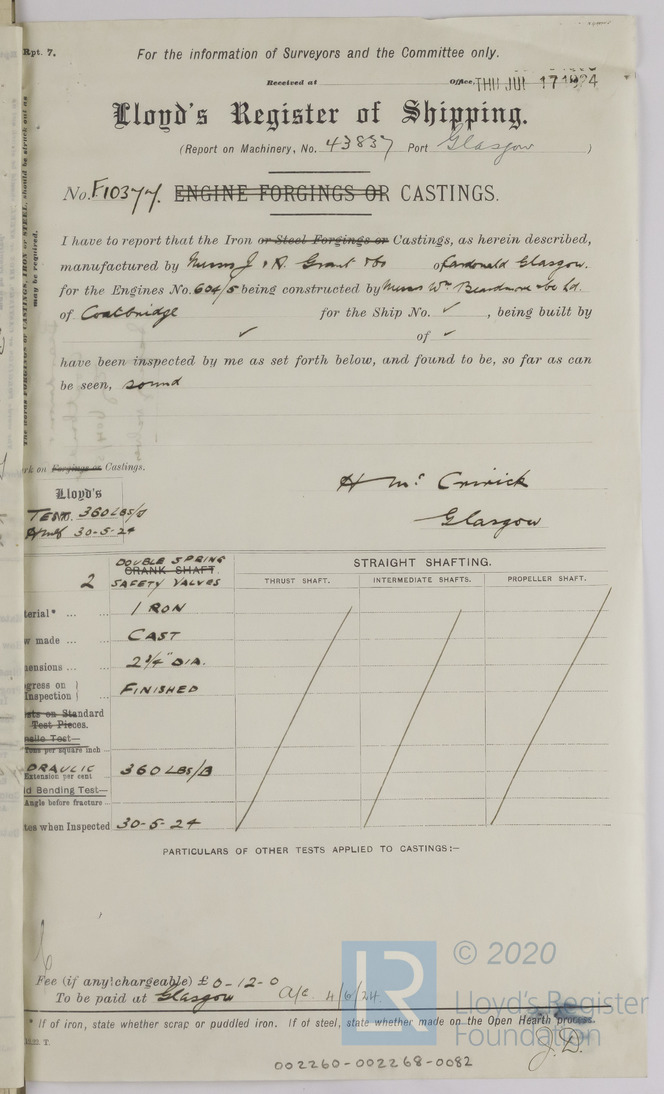 Rpt. 7.
For the information of Surveyors and the Committee only.
Received at Office, THU JUL 17 1924
Lloyd's Register of Shipping.
(Report on Machinery, No. 43837 Port Glasgow )
No. F10377. ENGINE FORGINGS OR CASTINGS.
I have to report that the Iron or Steel Forgings or Castings, as herein described,
manufactured by Messrs J & R. Grant & Co of Cardonald Glasgow.
for the Engines No. 604/5 being constructed by Messrs Wm Beardmore & Co Ld.
of Coatbridge for the Ship No. ✓ , being built by
✓ of ✓
have been inspected by me as set forth below, and found to be, so far as can
be seen, sound
rk on Forgings or Castings.
Lloyd's
TEST. 360 LBS/□
HMG 30-5-24
H Mc
Glasgow
2 DOUBLE SPRING
CRANK SHAFT.
SAFETY VALVES
STRAIGHT SHAFTING.
THRUST SHAFT. INTERMEDIATE SHAFTS. PROPELLER SHAFT.
terial* ... ... IRON
w made ... ... CAST
ensions ... ... 2¾" DIA.
gress on }
Inspection } FINISHED
sts on Standard
Test Pieces.
nsile Test—
Tons per square inch ...
DRAULIC 360 LBS/□
Extension per cent
ld Bending Test—
Angle before fracture ...
tes when Inspected 30-5-24
PARTICULARS OF OTHER TESTS APPLIED TO CASTINGS:—
Fee (if any chargeable) £ 0-12-0
To be paid at Glasgow A/c. 4/6/24.
* If of iron, state whether scrap or puddled iron. If of steel, state whether made on the Open Hearth process.
J.D.
LR © 2020
Lloyd's Register
Foundation
002260-002268-0082